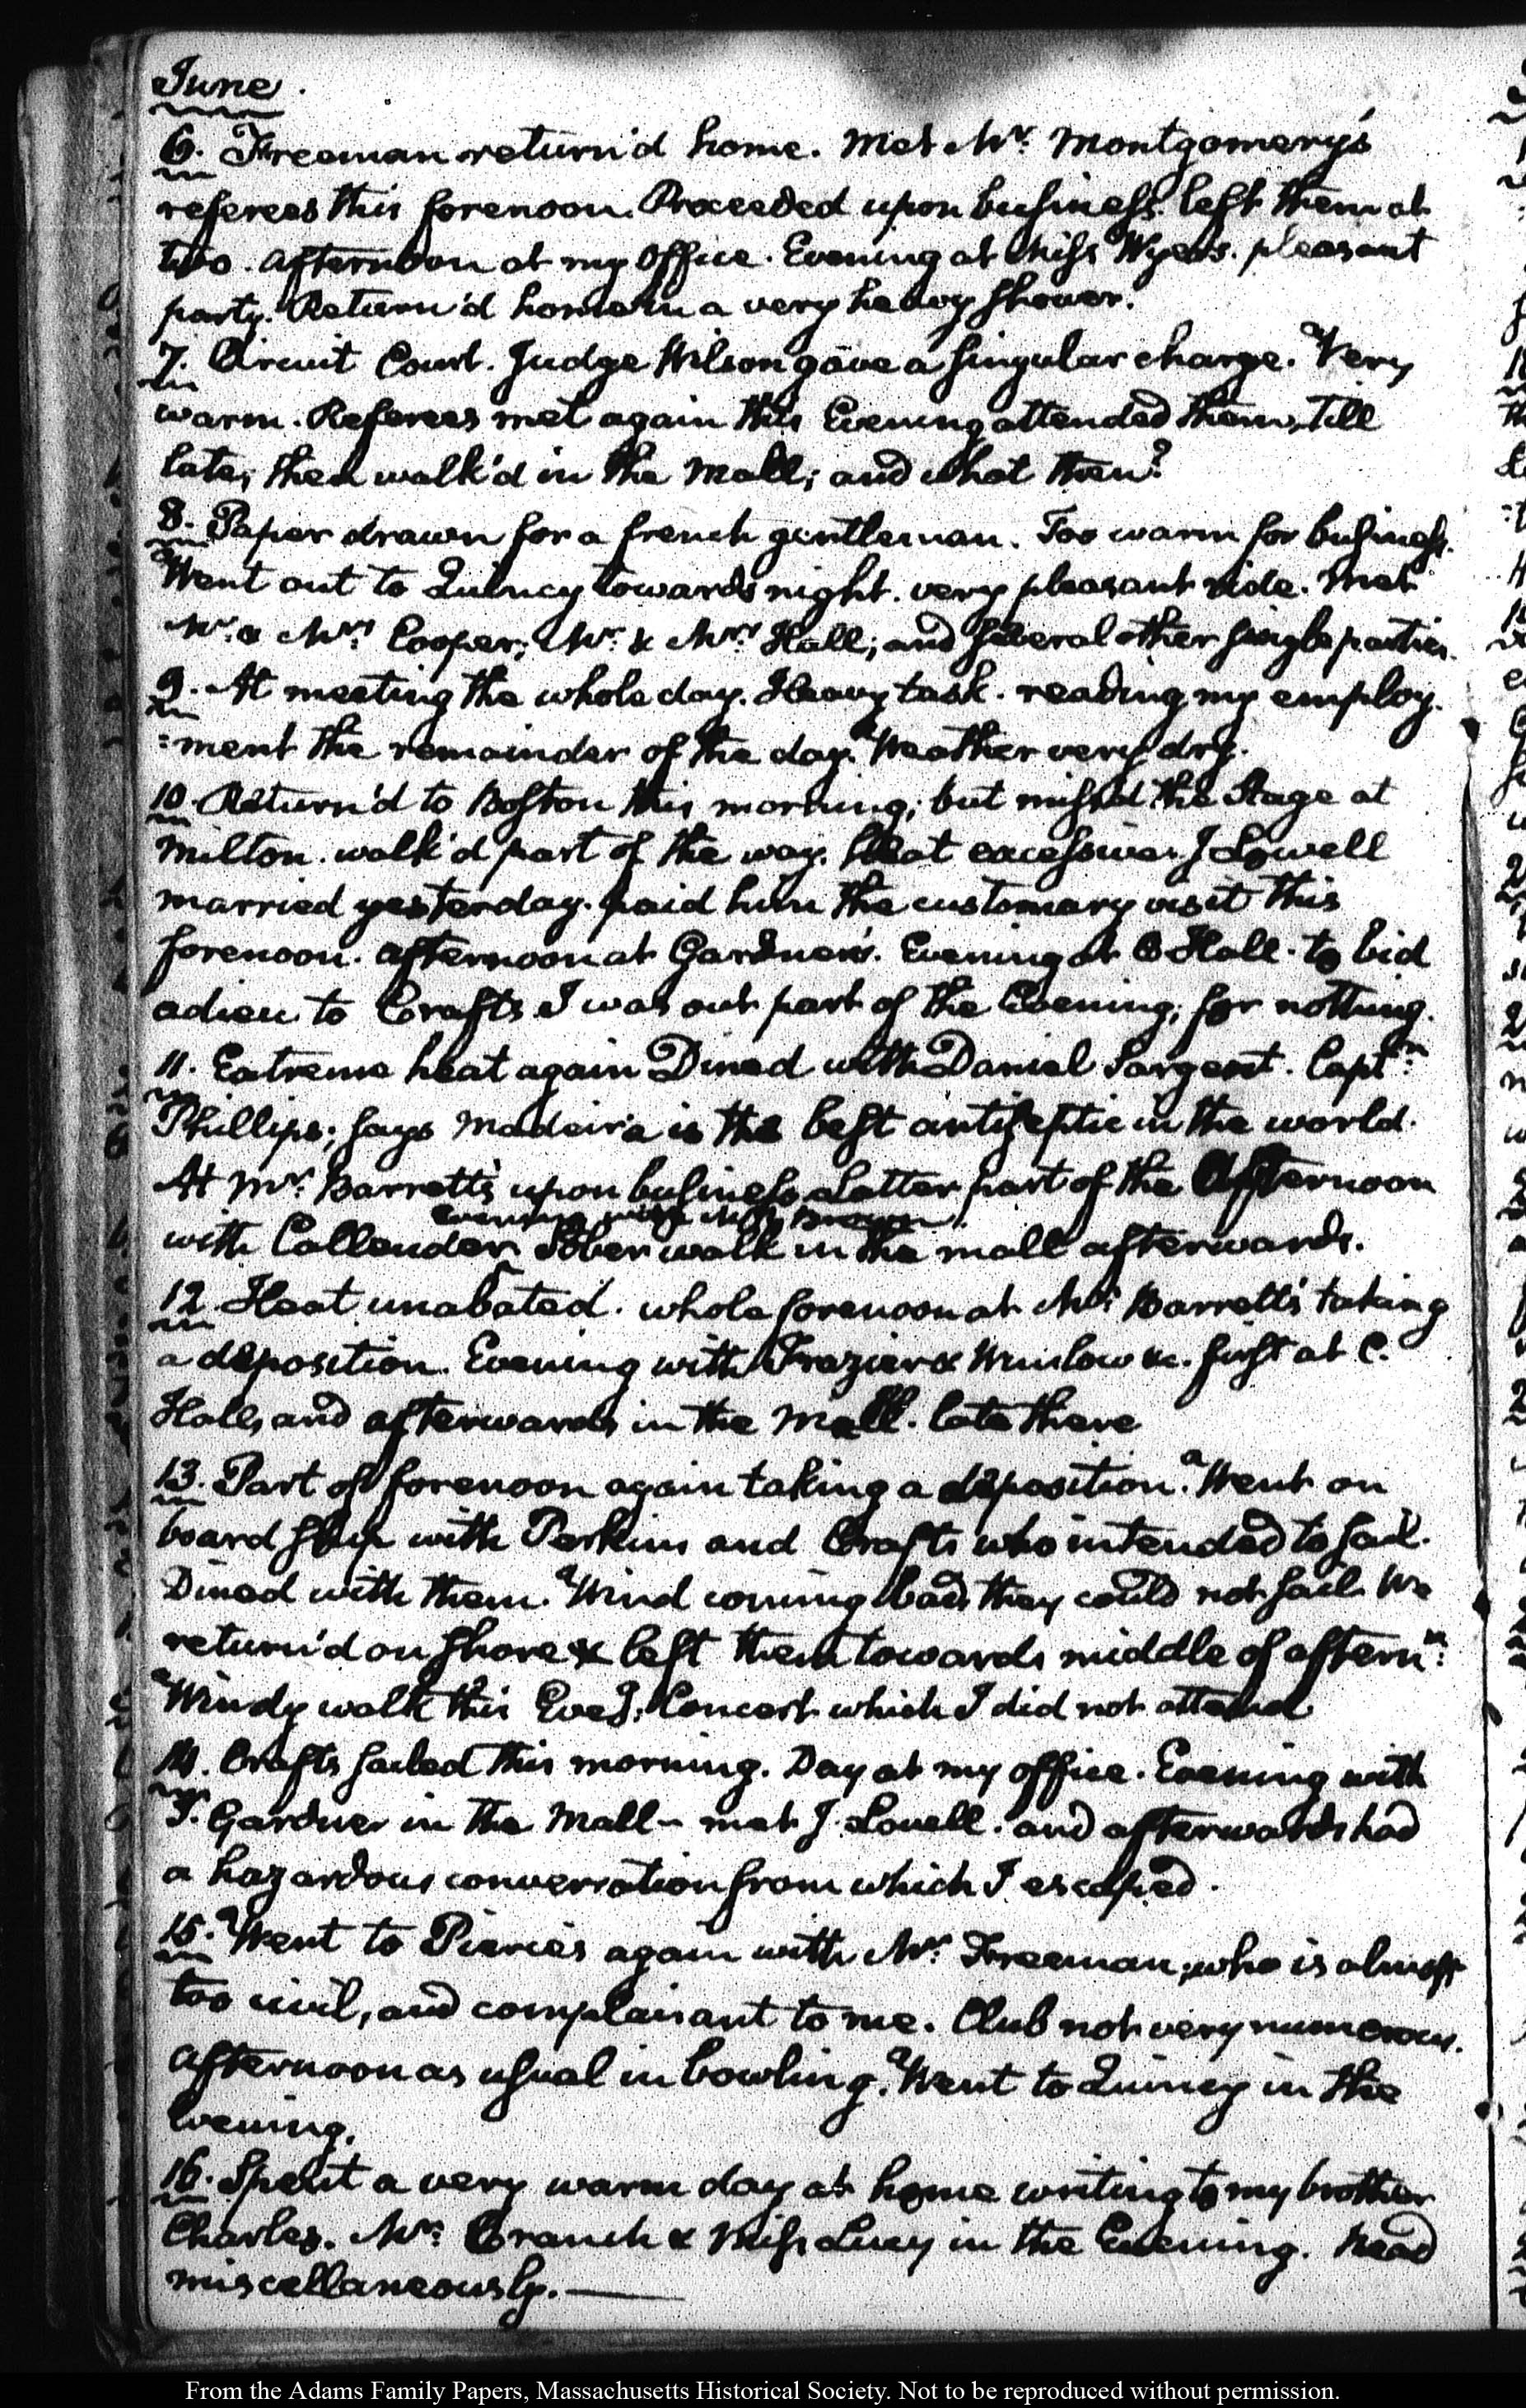 June.
6. Freeman return'd home. Met Mr. Montgomery's
referees this forenoon. Proceeded upon business. left them at
two. afternoon at my Office. Evening at Miss Wyer's. pleasant
party. Return'd home in a very heavy shower.
7. Circuit Court. Judge Wilson gave a singular charge. Very
warm. Referees met again this Evening attended them, till
late; then walk'd in the Mall; and what then?
8. Paper drawn for a french gentleman. Too warm for business.
Went out to Quincy towards night. very pleasant ride. Met
Mr. & Mrs. Cooper; Mr. & Mrs. Hall; and several other single parties.
9. At meeting the whole day. Heavy task. reading my employ-
:ment the remainder of the day. Weather very dry.
10. Return'd to Boston this morning; but miss'd the Stage at
Milton. walk'd part of the way. Heat excessive. J Lowell
married yesterday. paid him the customary visit this
forenoon. afternoon at Gardner's. Evening at C Hall. to bid
adieu to Crafts. I was out part of the Evening; for nothing.
11. Extreme heat again Dined with Daniel Sargent. Captn:
Phillips; says Madeira is the best antiseptic in the world.
At Mr. Barrett's upon business. Latter part of the Afternoon
evening with Miss Breck.
with Callender. Sober walk in the mall afterwards.
12 Heat unabated. whole forenoon at Mr. Barrett's taking
a deposition. Evening with Frazier & Winslow &c. first at C.
Hall, and afterwards in the Mall. late there
13. Part of forenoon again taking a deposition. Went on
board ship with Perkins and Crafts who intended to sail.
Dined with them. Wind coming bad they could not sail We
return'd on shore & left them towards middle of aftern:n
Windy walk this Eveg. Concert which I did not attend
14. Crafts sailed this morning. Day at my office. Evening with
J. Gardner in the Mall - met J. Lowell. and afterwards had
a hazardous conversation from which I escaped.
15. Went to Pierie's again with Mr. Freeman, who is almost
too civil, and complaisant to me. Club not very numerous.
Afternoon as usual in bowling. Went to Quincy in the
Evening.
16. Spent a very warm day at home writing to my brother
Charles. Mrs. Cranch & Miss Lucy in the Evening. Read
miscellaneously.
From the Adams Family Papers, Massachusetts Historical Society. Not to be reproduced without permission.